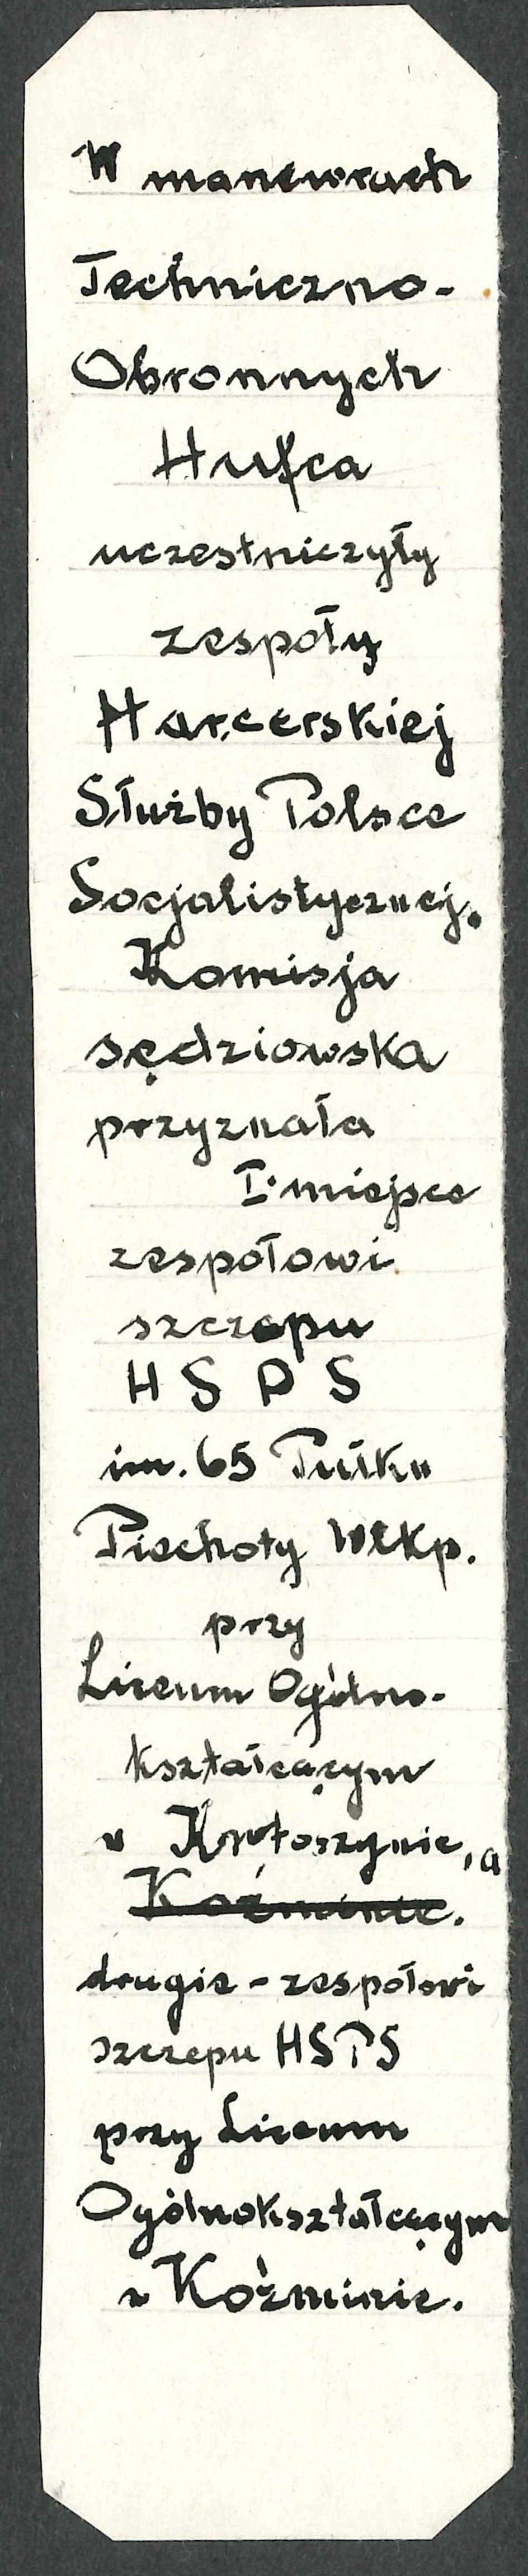 W manewrach
Techniczno-
Obronnych
Hufca
uczestniczyły
zespoły
Harcerskiej
Służby Polsce
Socjalistycznej.
Komisja
sędziowska
przyznała
I miejsce
zespołowi
szczepu
H S P S
im. 65 Pułku
Piechoty Wlkp.
przy
Liceum Ogólno-
kształcącym
w Krotoszynie, a
Koźminie.
drugie - zespołowi
szczepu HSPS
przy Liceum
Ogólnokształcącym
w Koźminie.